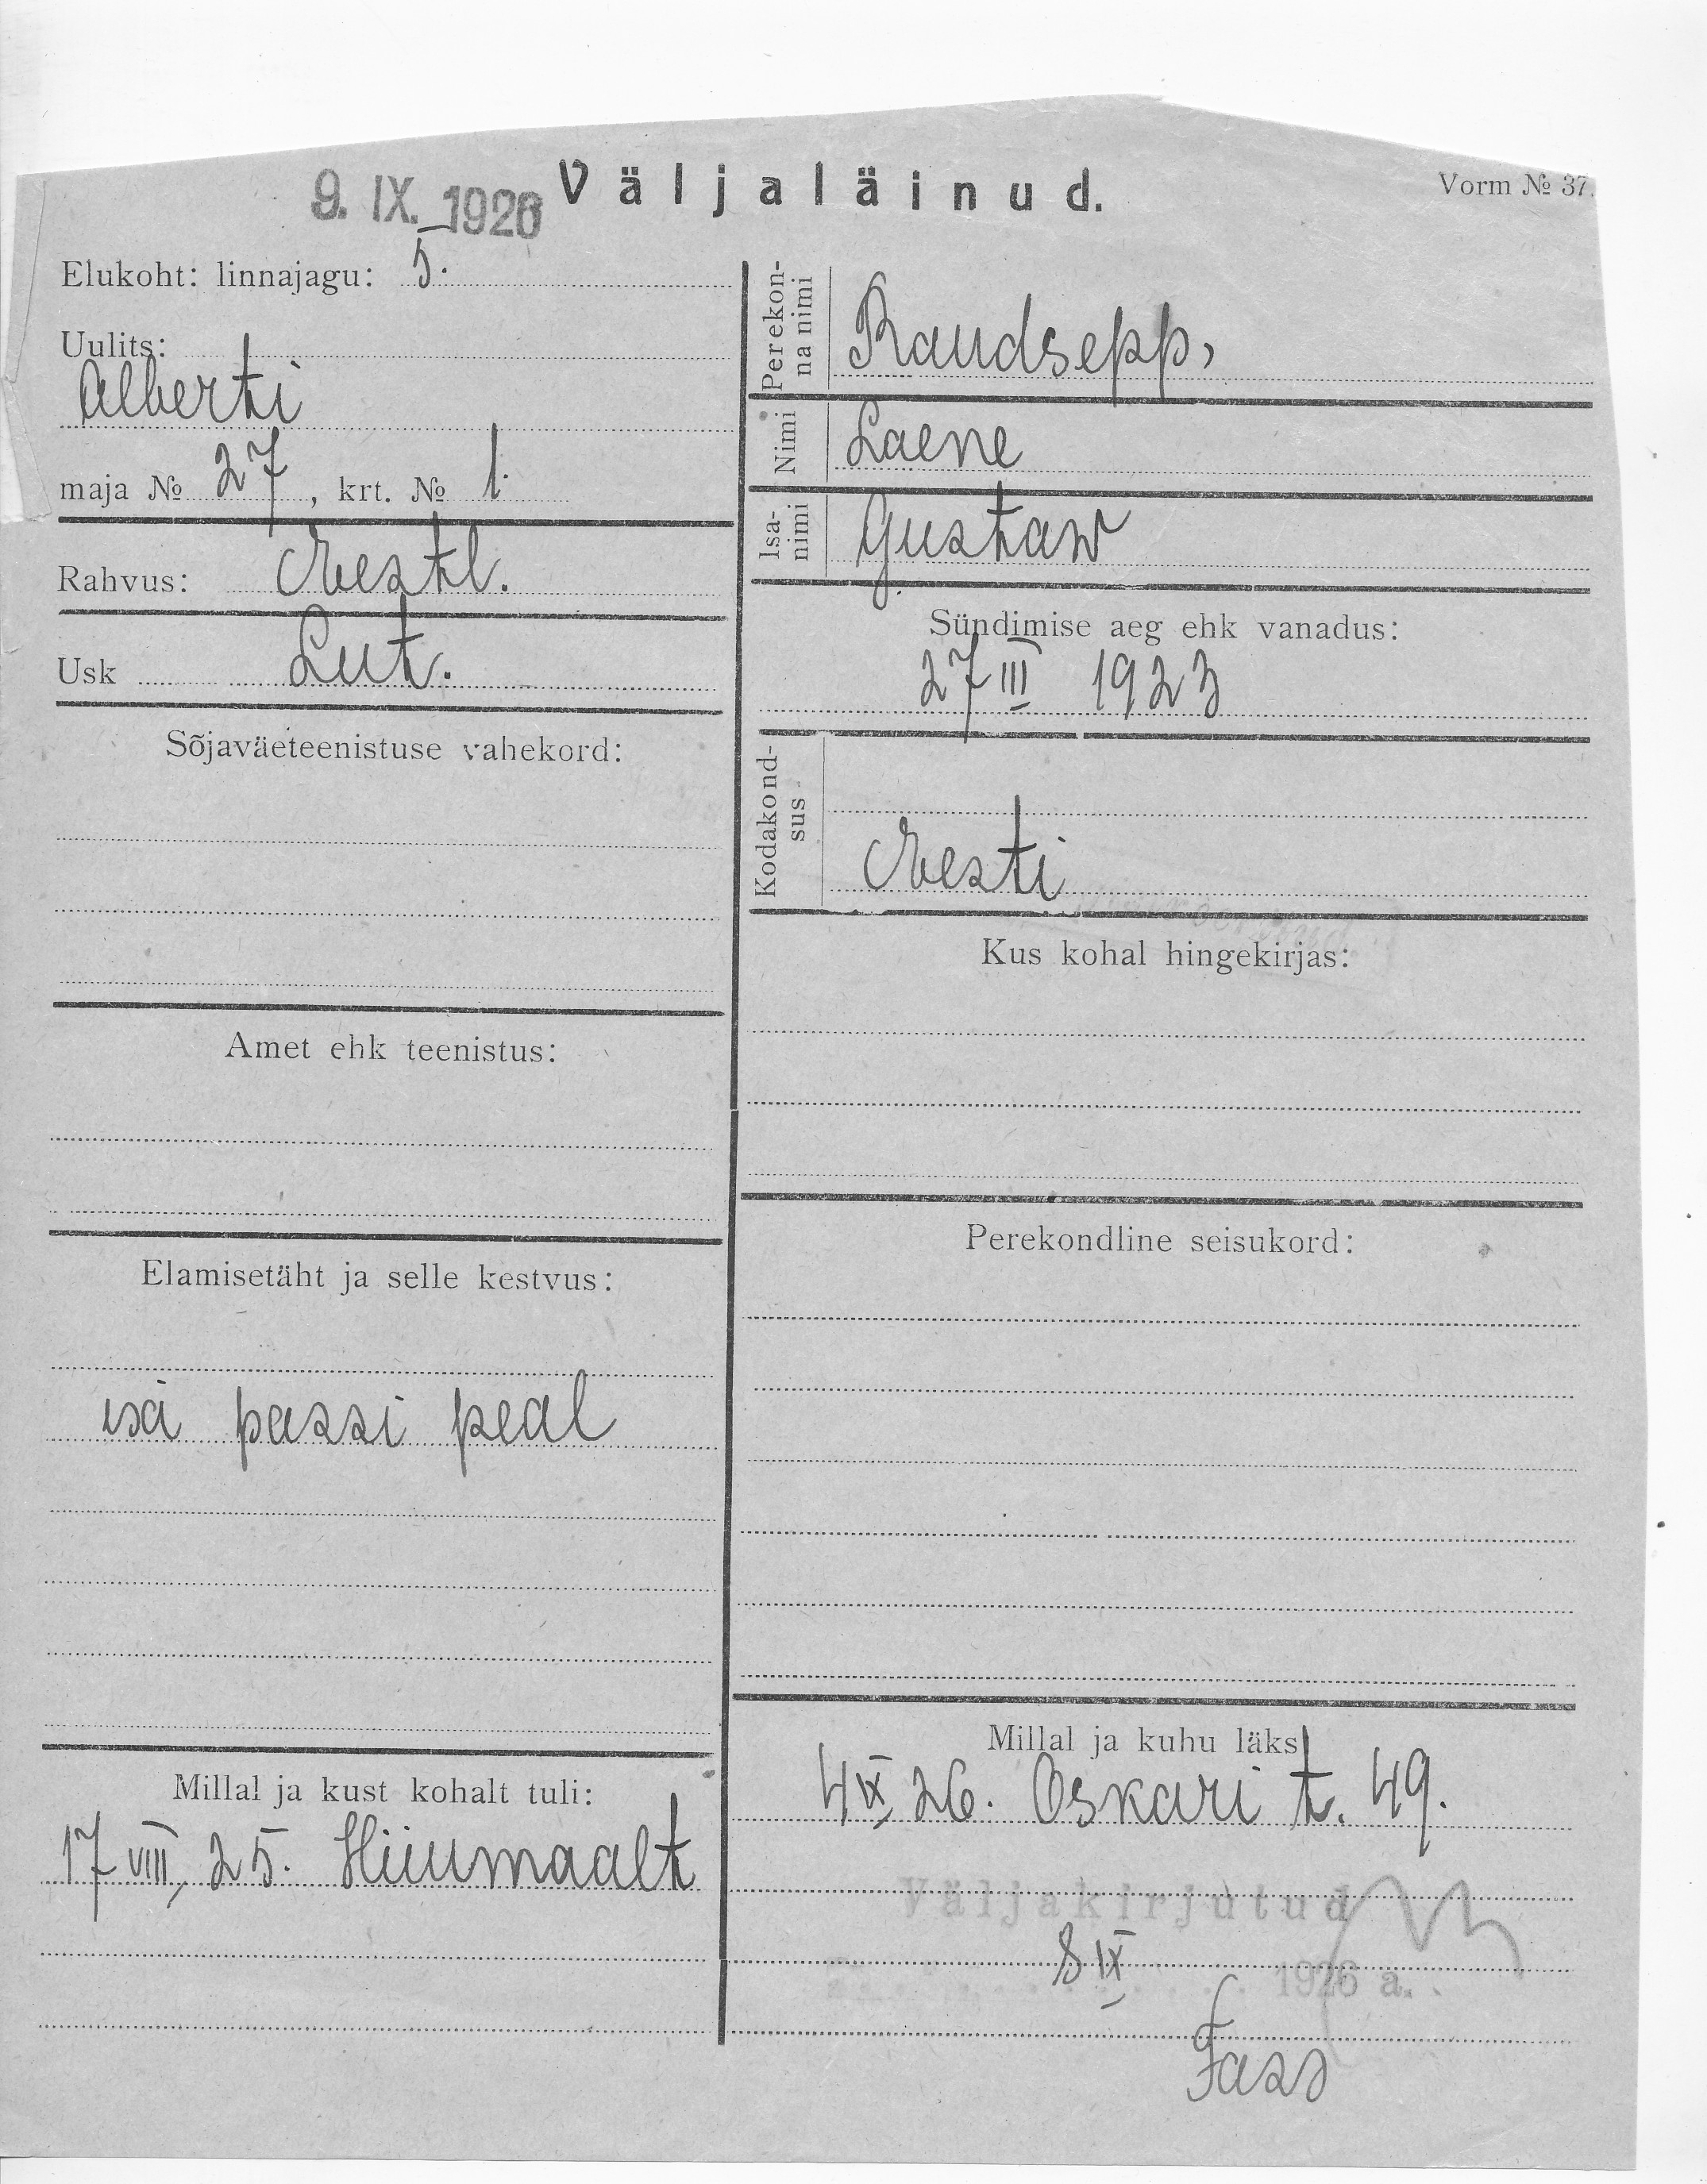 9. IX. 1926 Väljaläinud.
Vorm № 37.
Elukoht: linnajagu: 5.
Uulits:
Alberti
maja № 27, krt. № 1.
Rahvus: Eestl.
Usk Lut.
Sõjaväeteenistuse vahekord:
Amet ehk teenistus:
Elamisetäht ja selle kestvus:
isa passi peal
Millal ja kust kohalt tuli:
17 VIII 25. Hiiumaalt
Perekon-
na nimi
Raudsepp,
Nimi Laene
Isa-
nimi
Gustaw
Sündimise aeg ehk vanadus:
27 III 1923
Kodakond-
sus
Eesti
Kus kohal hingekirjas:
Perekondline seisukord:
Millal ja kuhu läks
4 IX 26. Oskari t. 49.
Väljakirjutud
8 IX 1926 a.
Fass